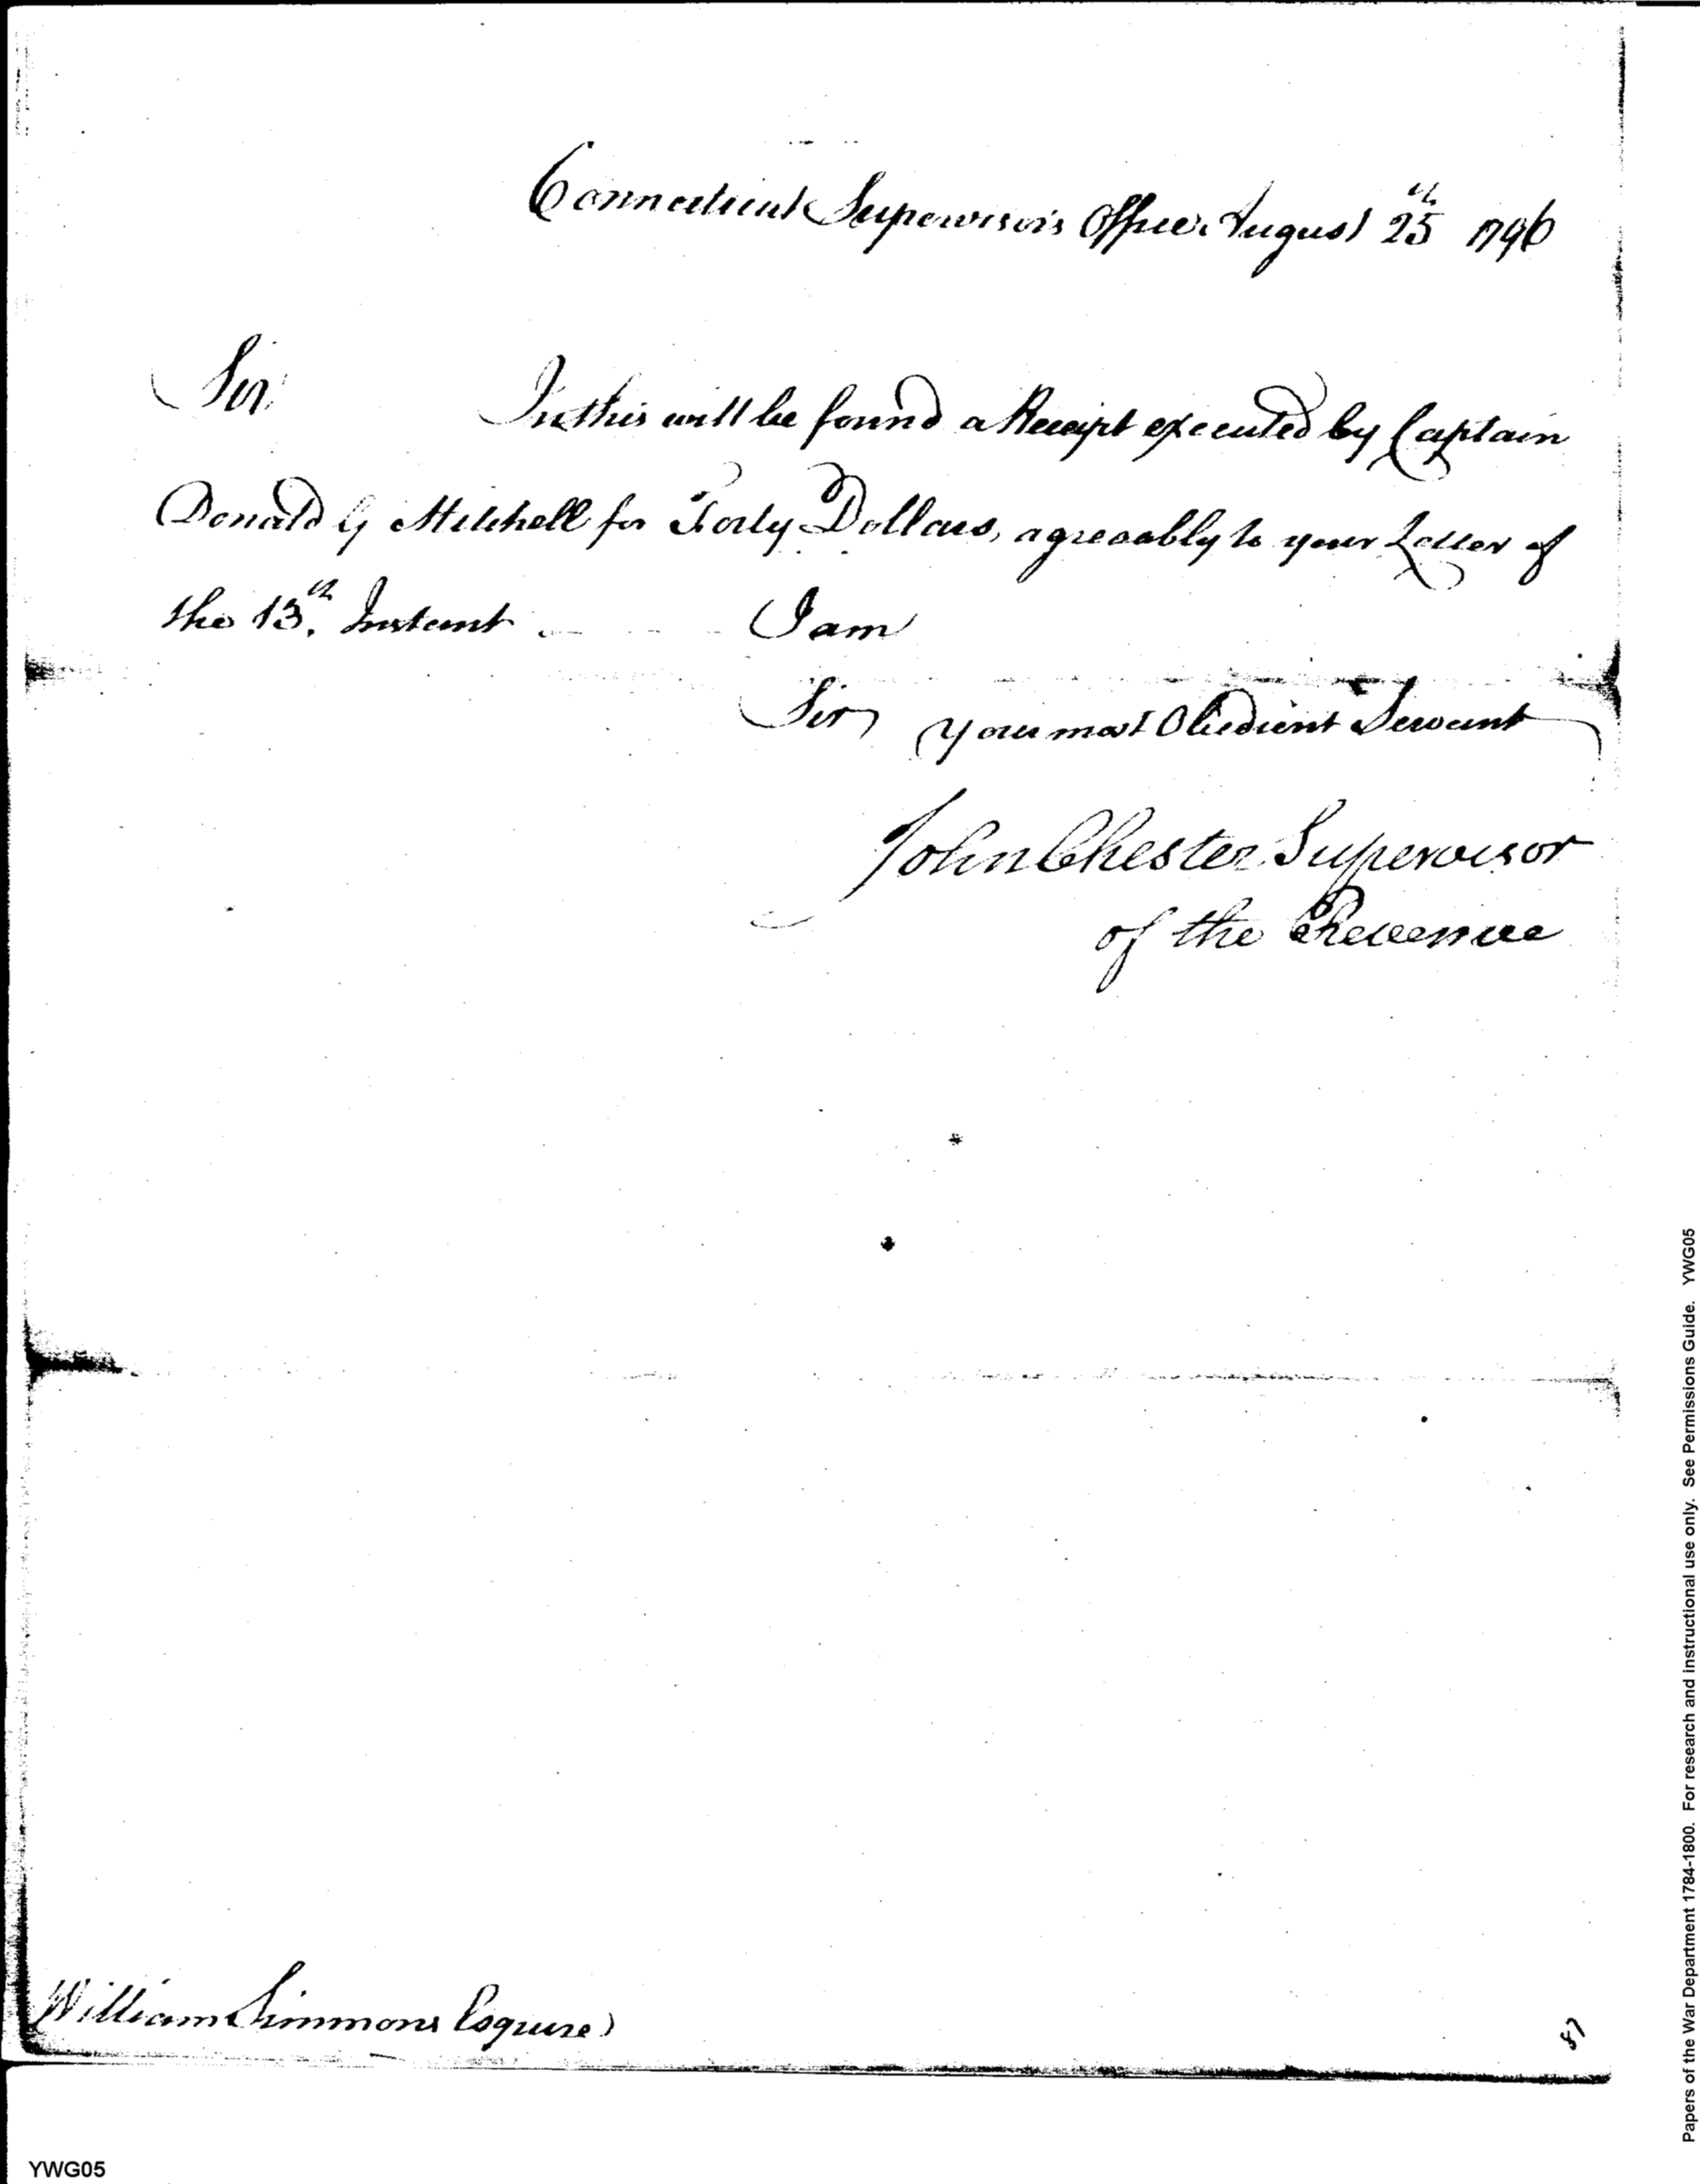 Connecticut Supervisor's Office August 25th 1796
Sir
In this will be found a Receipt executed by Captain
Donald G Mitchell for Forty Dollars, agreeably to your Letter of
the 13th. Instant I am
Sir your most Obedient Servant
John Chester Supervisor
of the Revenue
William Simmons Esquire
YWG05
Papers of the War Department 1784-1800. For research and instructional use only. See Permissions Guide. YWG05